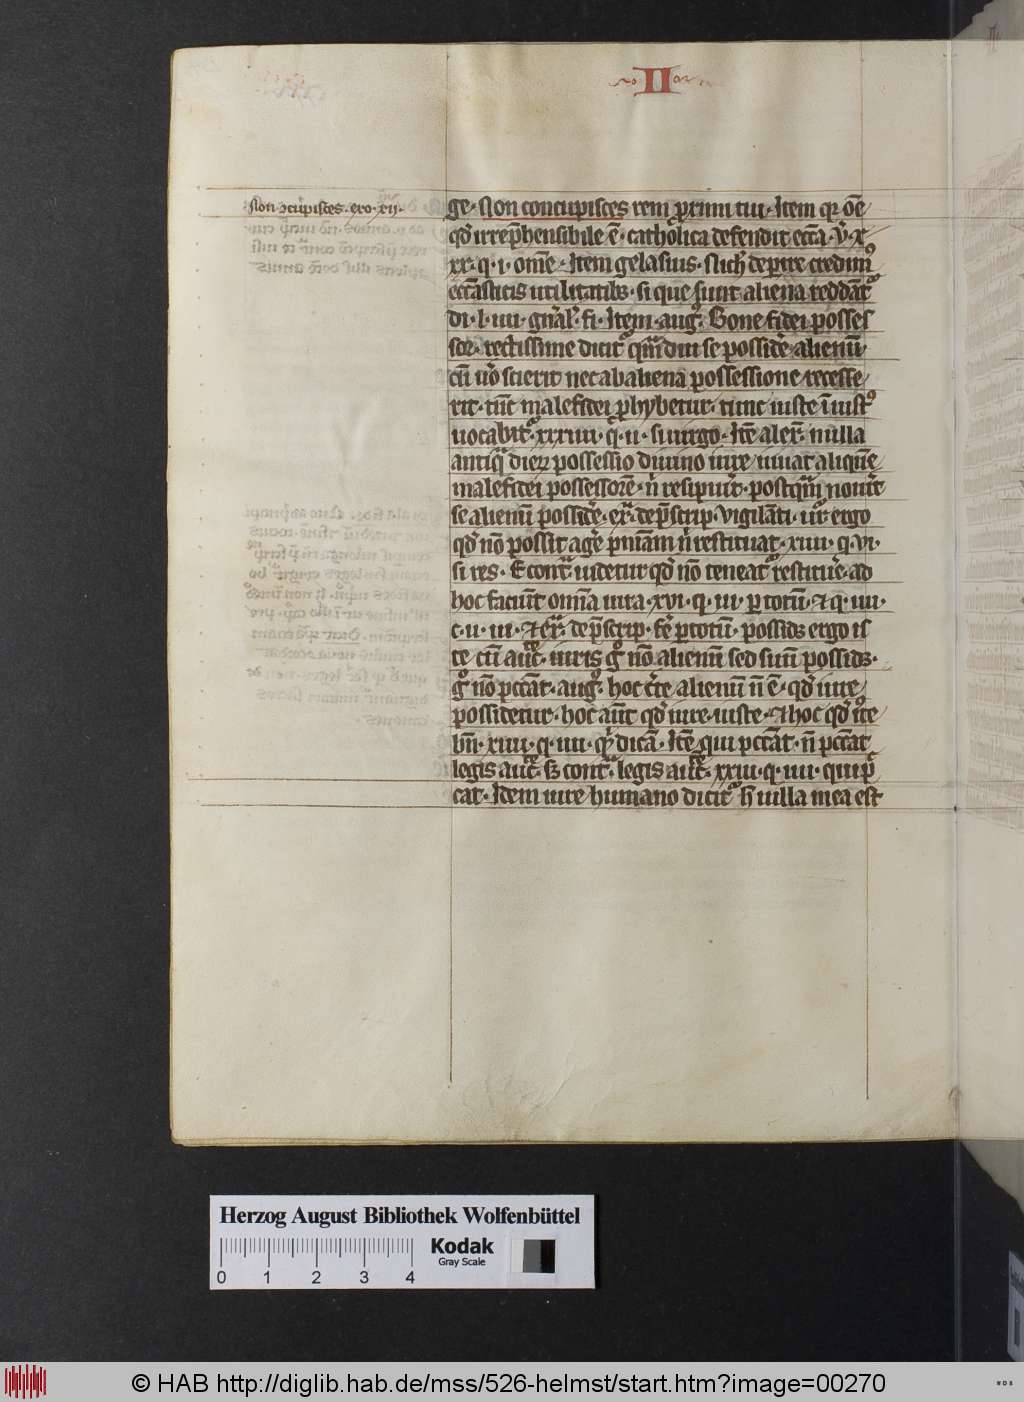 II
Non ɔcupisces. exo. xx.
ge. Non concupisces rem p̱ximi tui. Item qr oē
qd̄ irrep̄hensibile ē. catholica defendit ecc̄a. v̄. x
xx. q. i. om̄e. Item gelasius. Nich̄ deperire credim᷒
ecc̄asticis utilitatibꝫ. si que sunt aliena reddāt᷒
di. l. iiii. gn̄al᷒. fi. Item. aug᷒. Bone fidei posses
sor. rectissime dicit᷒ qm̄diu se possidē alienū.
cū u̇o scierit nec ab aliena possessione recesse
rit. tūc malefidei phybetur. tunc iuste īiust᷒
uocabit᷒. xxxiiii. q. ii. si uirgo. Itē alex̄. nulla
antiq̄ dierꝝ possessio diuino iure iuuat aliquē
malefidei possessorē. n̄ resipuīt. postq̄m nouīt
se alienū possidē. ex᷒. de p̄scrip. Vigilāti. ur̄ ergo
qd̄ nō possit agē pniam n̄ restituat. xiiii. q. vi.
si res. Econt᷒ uidetur qd̄ nō teneat᷒ restitue᷒ ad
hoc faciūt om̄ia iura. xvi. q. iii. p totū. ⁊ q. iiii.
c. ii. iii. ⁊ ex᷒. de p̄scrip. fē p totū. possidꝫ ergo is
te cū auc̄t. iuris gͦ nō alienū sed suū possidꝫ.
gͦ nō pcc̄at. aug᷒. hoc c̄te alienū n̄ ē. qd̄ iure
possidetur. hoc aūt qd̄ iure. iuste. ⁊ hoc qd̄ iu̅te
bn̄. xiiii. q. iiii. qd̄ dicā. Itē qui pcc̄at. n̄ pcc̄at
legis auc̄t. sꝫ cont᷒ legis auc̄t. xxiii. q. iiii. qui p̄
cat. Idem iure humano dicit᷒ h̄ uilla mea est
Herzog August Bibliothek Wolfenbüttel
0 1 2 3 4
Kodak
Gray Scale
© HAB http://diglib.hab.de/mss/526-helmst/start.htm?image=00270